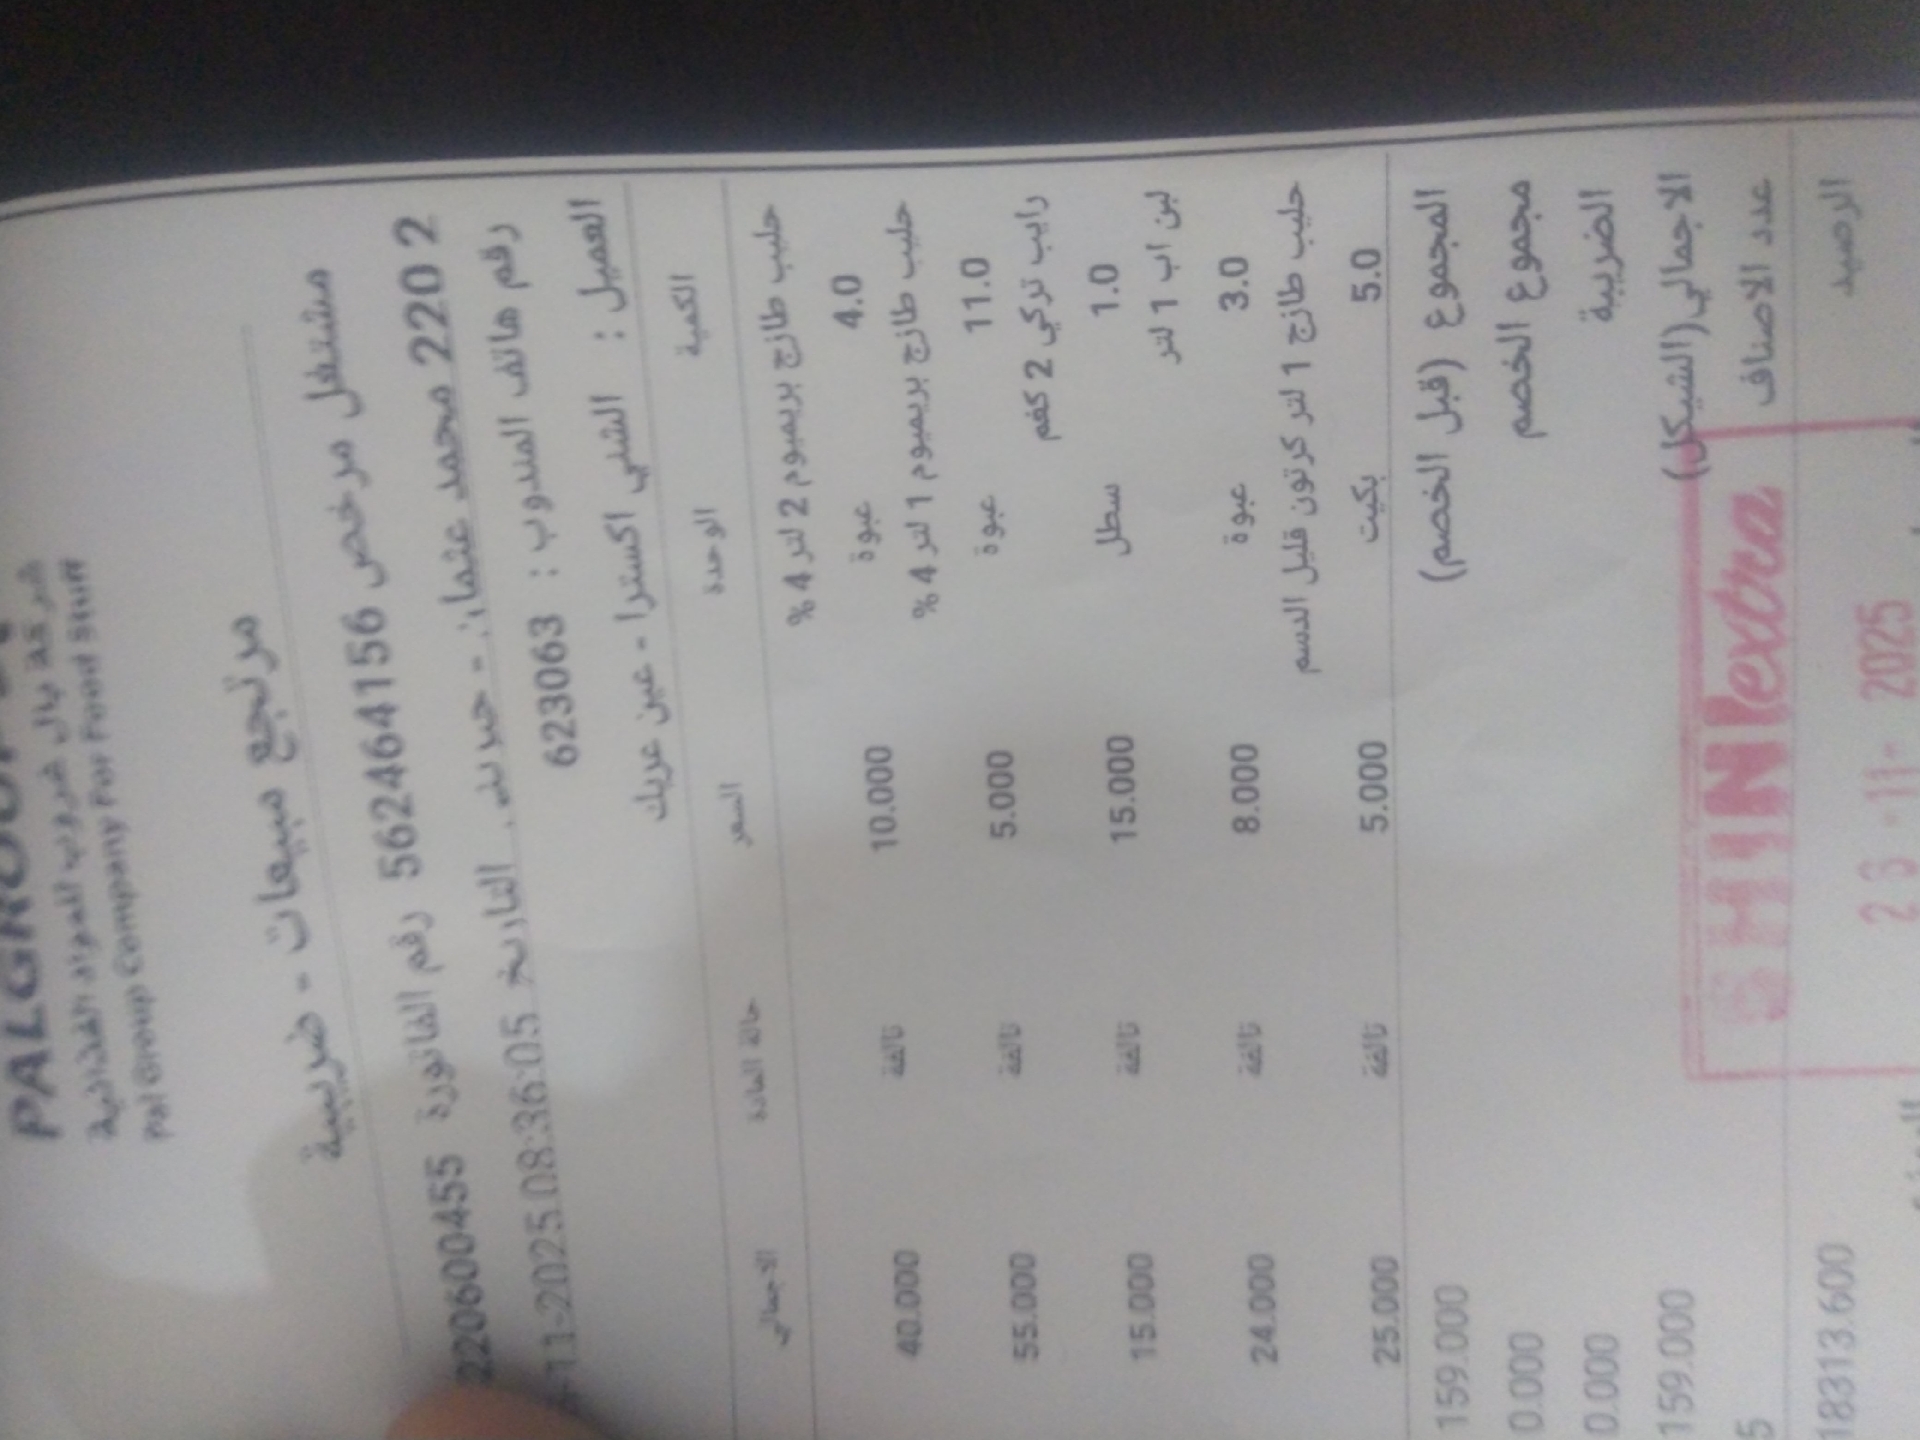 PALGROUP
شركة بال جروب للمواد الغذائية
Pal Group Company For Food Stuff
مرتجع مبيعات - ضريبية
مشتغل مرخص 562464156 رقم الفاتورة 220600455
2202 محمد عثمان - حمدلله. التاريخ 11-2025 08:36:05-
رقم هاتف المندوب : 623063
العميل : الشني اكسترا - عين عريك
الكمية الوحدة السعر حالة المادة الاجمالي
حليب طازج بريميوم 2 لتر 4 %
4.0 عبوة 10.000 تالفة 40.000
حليب طازج بريميوم 1 لتر 4 %
11.0 عبوة 5.000 تالفة 55.000
رايب تركي 2 كغم
1.0 سطل 15.000 تالفة 15.000
لبن اب 1 لتر
3.0 عبوة 8.000 تالفة 24.000
حليب طازج 1 لتر كرتون قليل الدسم
5.0 بكيت 5.000 تالفة 25.000
المجموع (قبل الخصم) 159.000
مجموع الخصم 0.000
الضريبة 0.000
الاجمالي(الشيكل) 159.000
عدد الاصناف 5
SHINI extra
الرصيد 18313.600
23 -11- 2025